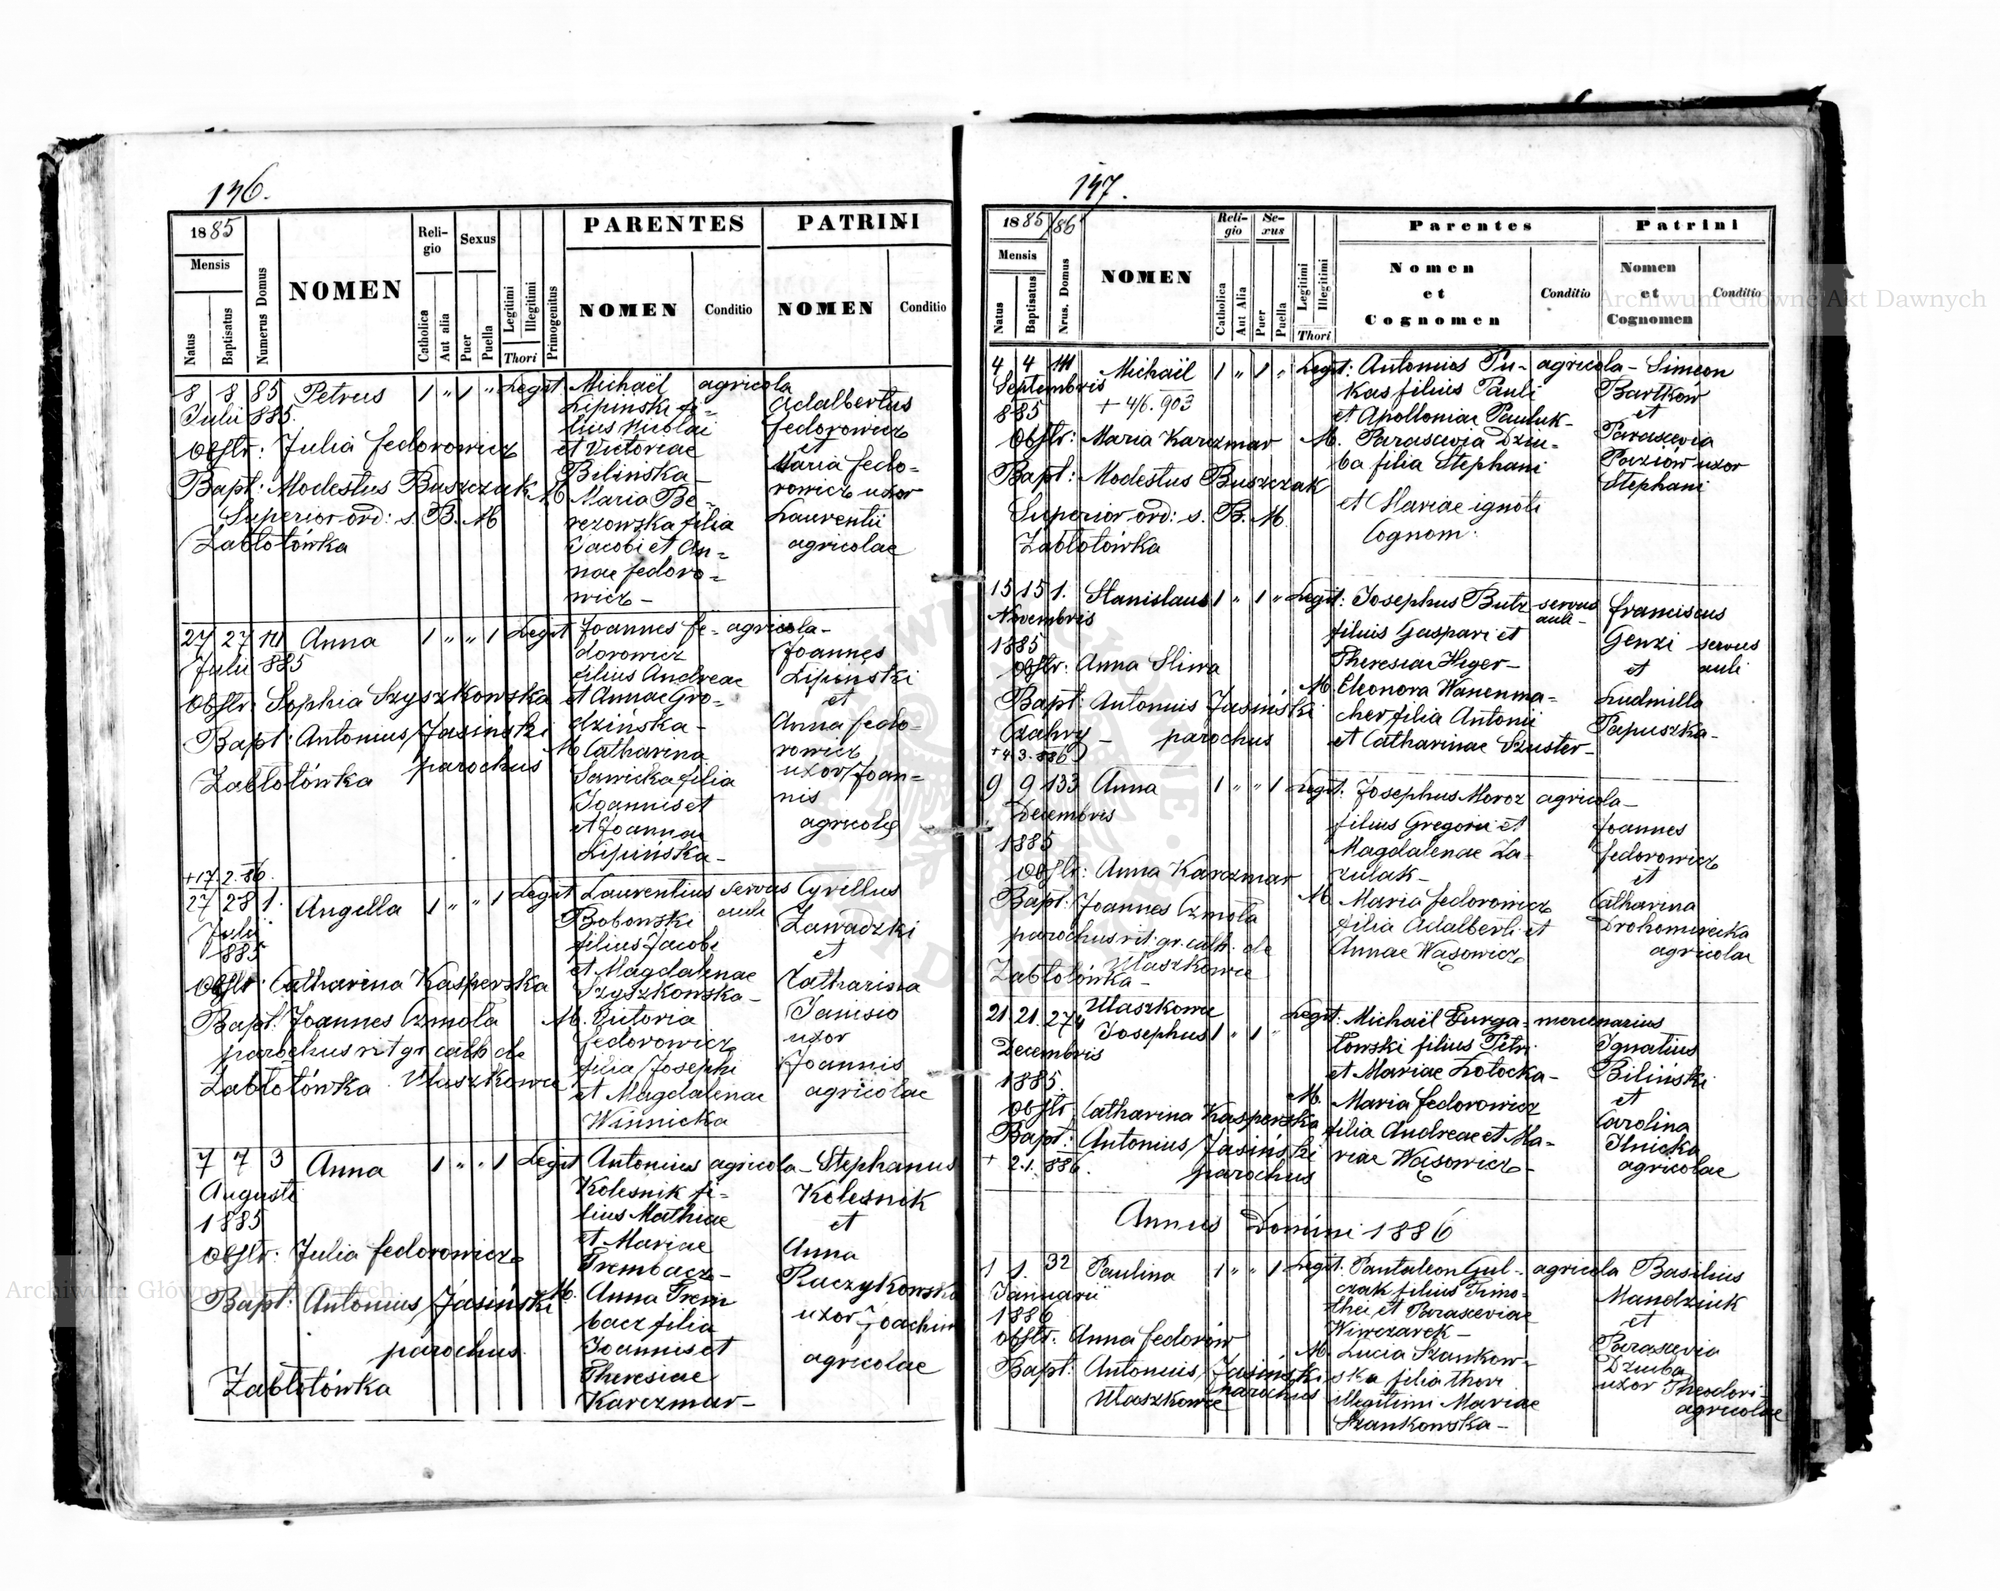 146.
1885
Mensis
Natus
Baptisatus
Numerus Domus
NOMEN
Reli-
gio
Catholica
Aut alia
Sexus
Puer
Puella
Legitimi
Illegitimi
Thori
Primogenitus
PARENTES
NOMEN
Conditio
PATRINI
NOMEN
Conditio
8 8 85 Petrus 1 " 1 " Legit. Michaël agricola
Julii 885.
Obstr: Julia Fedorowicz
Bapt: Modestus Buszczak
Superior ord: s. B. M
Zabłotówka
Lipinski fi-
lius
et Victoriae
Bilińska
M. Maria Be-
rezowska filia
Jacobi et An-
nae Fedoro-
wicz -
Adalbertus
Fedorowicz
et
Maria Fedo-
rowicz uxor
Laurentii
agricolae
27 27 111 Anna 1 " " 1 Legit Joannes Fe- agricola-
Julii 885
Obstr: Sophia Szyszkowska
Bapt: Antonius Jasiński
parochus
Zabłotówka
dorowicz
filius Andreae
et Annae Gro-
dzinska -
M Catharina
Sawicka filia
Joannis et
et Joannae
Lipińska -
Joannes
Lipinski
et
Anna Fedo-
rowicz
uxor Joan-
nis
agricolae
+17.2.86.
27 28 1. Angella 1 " " 1 Legit Laurentius servus Cyrillus
Julii
1885
Obstr: Catharina Kasperska
Bapt: Joannes Czmola
parochus rit gr. cath de
Zabłotówka Ulaszkowce
Bobowski auli
filius Jacobi
et Magdalenae
Szyszkowska -
M. Victoria
Fedorowicz
filia Josephi
et Magdalenae
Winnicka
Zawadzki
et
Catharina
Janisio
uxor
Joannis
agricolae
7 7 3 Anna 1 " " 1 Legit Antonius agricola - Stephanus
Augusti
1885
Obstr: Julia Fedorowicz
Bapt: Antonius Jasiński
parochus
Zabłotówka
Kolesnik fi-
lius Mathiae
et Mariae
Trembacz -
M. Anna Trem
bacz filia
Joannis et
Theresiae
Karczmar -
Kolesnik
et
Anna
Raczykowska
uxor Joachim
agricolae
147.
1885/86
Mensis
Natus
Baptisatus
Nrus. Domus
NOMEN
Reli-
gio
Catholica
Aut Alia
Se-
xus
Puer
Puella
Legitimi
Illegitimi
Thori
Parentes
Nomen
et
Cognomen
Conditio
Patrini
Nomen
et
Cognomen
Conditio
4 4 141 Michaël 1 " 1 " Legit: Antonius Pu- agricola - Simeon
Septembris
885 + 4/6. 903
Obstr: Maria Karczmar
Bapt: Modestus Buszczak
Superior ord: s. B. M.
Zabłotówka
kas filius Pauli
et Apolloniae Pauluk-
M. Parascevia Dziu-
ba filia Stephani
et Mariae ignoti
Cognom:
Bartków
et
Parascevia
Paziów uxor
Stephani
15 15 1. Stanislaus 1 " 1 " Legit: Josephus Butz servus Franciscus
auli -
Novembris
1885
Obstr: Anna Sliwa
Bapt: Antonius Jasiński
Czahry - parochus
+ 4.3.886
filius Gaspari et
Theresiae Heger -
M. Eleonora Wanenma-
cher filia Antonii
et Catharinae Szuster -
Genzi servus
et auli
Ludmilla
Papuszka -
9 9 133 Anna 1 " " 1 Legit. Josephus Moroz agricola -
Decembris
1885
Obstr: Anna Karczmar
Bapt: Joannes Czmola
parochus rit. gr. cath. de
Ulaszkowce
Zabłotówka -
filius Gregorii et
Magdalenae Za-
zulak -
M. Maria Fedorowicz
filia Adalberti et
Annae Wąsowicz
Joannes
Fedorowicz
et
Catharina
Drohomirecka
agricolae
Ulaszkowce
21 21. 274 Josephus 1 " 1 " Legit: Michaël Furga- mercenarius
Decembris
1885.
Obstr. Catharina Kasperska
Bapt: Antonius Jasiński
+ 2.1.886. parochus
łowski filius Petri
et Mariae Zołocka -
M. Maria Fedorowicz
filia Andreae et Ma-
riae Wąsowicz -
Ignatius
Biliński
et
Carolina
Ilnicka
agricolae
Annus Domini 1886
1 1. 32 Paulina 1 " " 1 Legit. Pantaleon Gul- agricola Basilius
Januarii
1886
Obstr: Anna Fedorów
Bapt: Antonius Jasiński
parochus
Ulaszkowce
czak filius Timo-
thei et Parasceviae
Winczarek -
M. Lucia Szankow-
ska filia thori
illegitimi Mariae
Szankowska -
Mandziuk
et
Parascevia
Dziuba
uxor Theodori -
agricolae
Archiwum Główne Akt Dawnych
Archiwum Główne Akt Dawnych